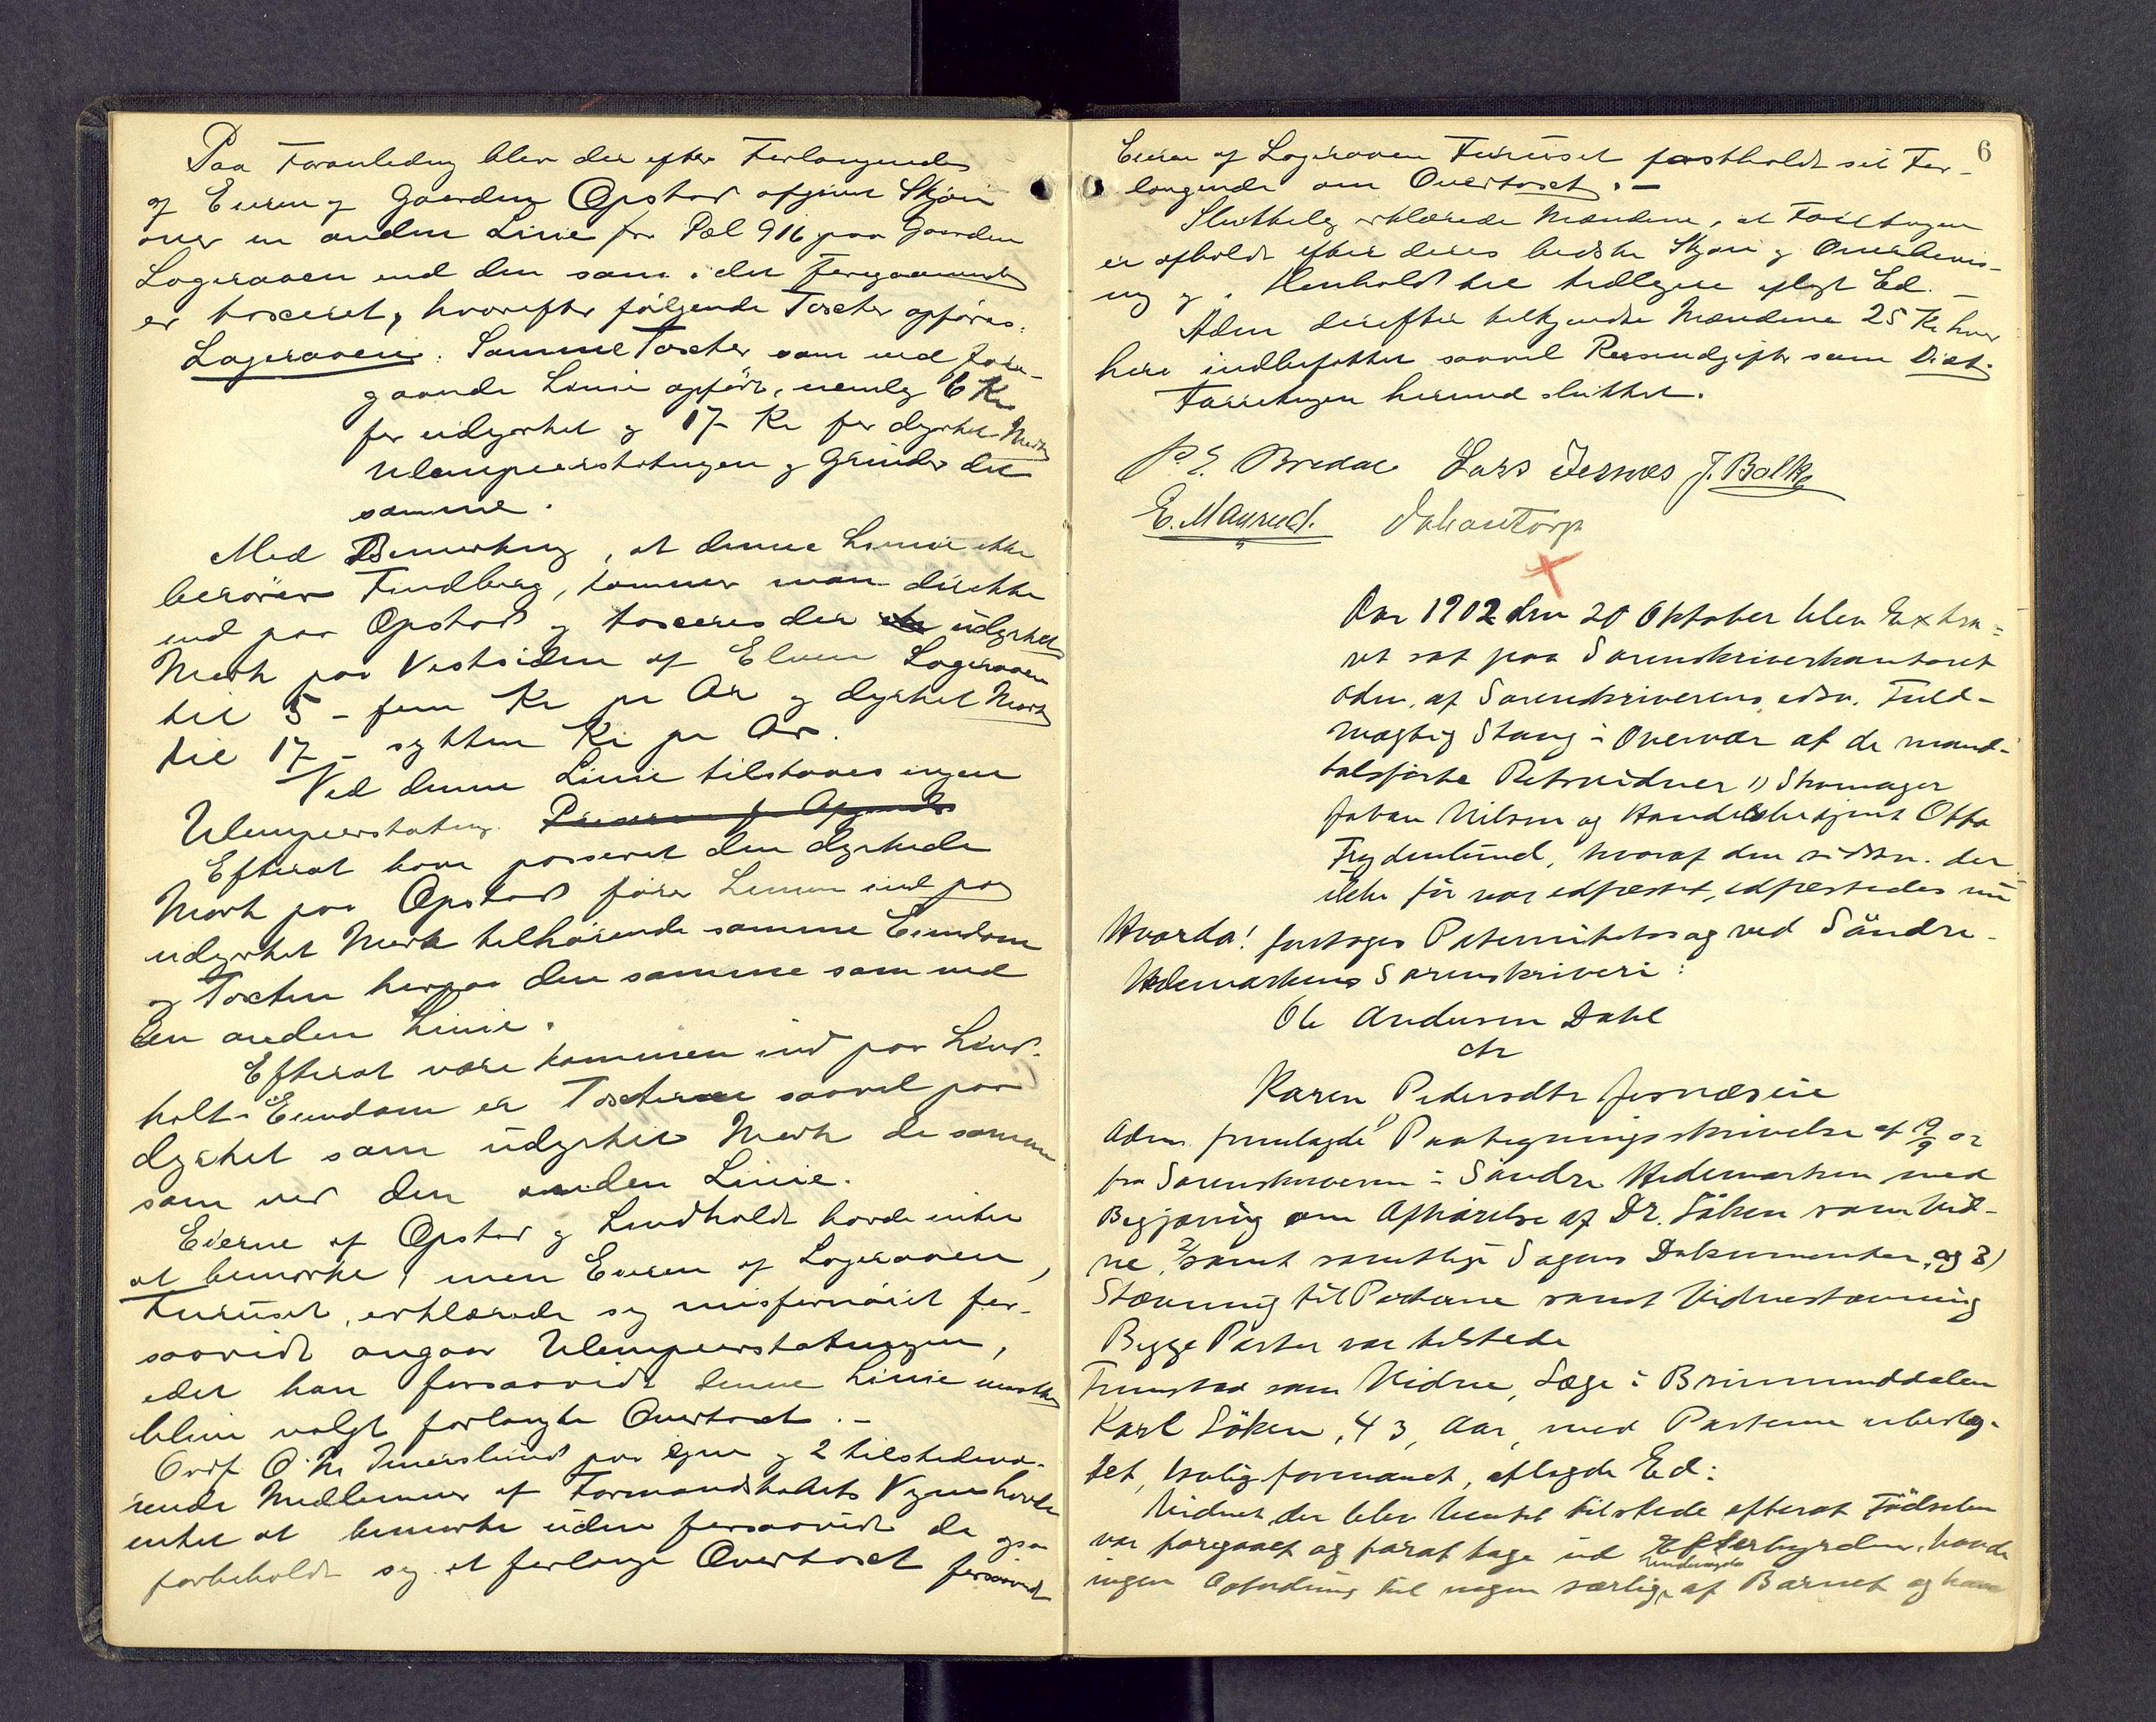 Paa Foranledning blev der efter Forlangende
af Eieren af Gaarden Opstad afgivet Skjøn
over en anden Linie fra Pæl 916 paa Gaarden
Lageraaen end den som i det foregaaende
er taxeret, hvorefter følgende Taxter opføres:
Lageraaen: Samme Taxter som ved fore-
gaaende Linie opført, nemlig 6 Kr
for udyrket og 17 Kr for dyrket Mark
Ulempeerstatningen og Grinder det
samme.
Med Bemærkning, at denne Linie ikke
berører Findberg, kommer man direkte
ind paa Opstad og taxeres der udyrket
Mark paa Vestsiden af Elven Lageraaen
til 5 - fem Kr pr Ar og dyrket Mark
til 17 - sytten Kr pr Ar.
Ved denne Linie tilstaaes ingen
Ulempeerstatning.
Efterat have passeret den dyrkede
Mark paa Opstad fører Linien ind paa
udyrket Mark tilhørende samme Eiendom
og Taxten herpaa den samme som ved
den anden Linie.
Efterat være kommen ind paa Lind-
holt Eiendom er Taxterne saavel paa
dyrket som udyrket Mark de samme
som ved den anden Linie.
Eierne af Opstad og Lindholdt havde intet
at bemærke, men Eieren af Lageraaen,
Furuset, erklærede sig misfornøiet for-
saavidt angaar Ulempeerstatningen,
idet han forsaavidt denne Linie maatte
blive valgt forlangte Overtaxt. -
Ordf O. M. Imerslund paa egne og 2 tilstedevæ-
rende Medlemmer af Formandskabets Vegne havde
intet at bemærke uden forsaavidt de ogsaa
forbeholdt sig at forlange Overtaxt forsaavidt
6
Eieren af Lageraaen Furuset fastholdt sit For-
langende om Overtaxt. -
Sluttelig erklærede Mændene, at Forretningen
er afholdt efter deres bedste Skjøn og Overbevis-
ning og i Henhold til tidligere aflagt Ed. -
Adm derefter tilkjendte Mændene 25 Kr hver
heri indbefattet saavel Reiseudgifter som Diæt.
Forretningen hermed sluttet.
P. E. Bredal Lars Jernæs J. Balke
E. Maurud. Johan Torp
Aar 1902 den 20 Oktober blev Extra-
ret sat paa Sorenskriverkontoret
adm. af Sorenskriverens edsv. Fuld-
mægtig Stang i Overvær af de mand-
talsførte Retsvidner 1) Skomager
Johan Nilsen og Handelsbetjent Otto
Frydenlund, hvoraf den sidstn. der
ikke før var edfæstet, edfæstedes nu
Hvorda! foretoges Paternitetssag ved Søndre
Hedemarkens Sorenskriveri:
Ole Andersen Dahl
ctr
Karen Pedersdtr Jesnæseie
Adm. fremlagde 1) Paategningsskrivelse af 19/9 02
fra Sorenskriveren i Søndre Hedemarken med
Begjæring om Afhørelse af Dr. Løken som Vid-
ne, 2) samt samtlige Sagens Dokumenter, og 3)
Stævning til Parterne samt Vidnestævning
Begge Parter var tilstede
Fremstod som Vidne, Læge i Brummunddalen
Karl Løken, 43, Aar, med Parterne ubeslæg-
tet, lovlig formanet, aflagde Ed:
Vidnet der blev hentet tilstede efterat Fødselen
var foregaaet og forat tage ud Efterbyrden, havde
ingen Opfordring til nogen særlig Undersøgelse af Barnet og han